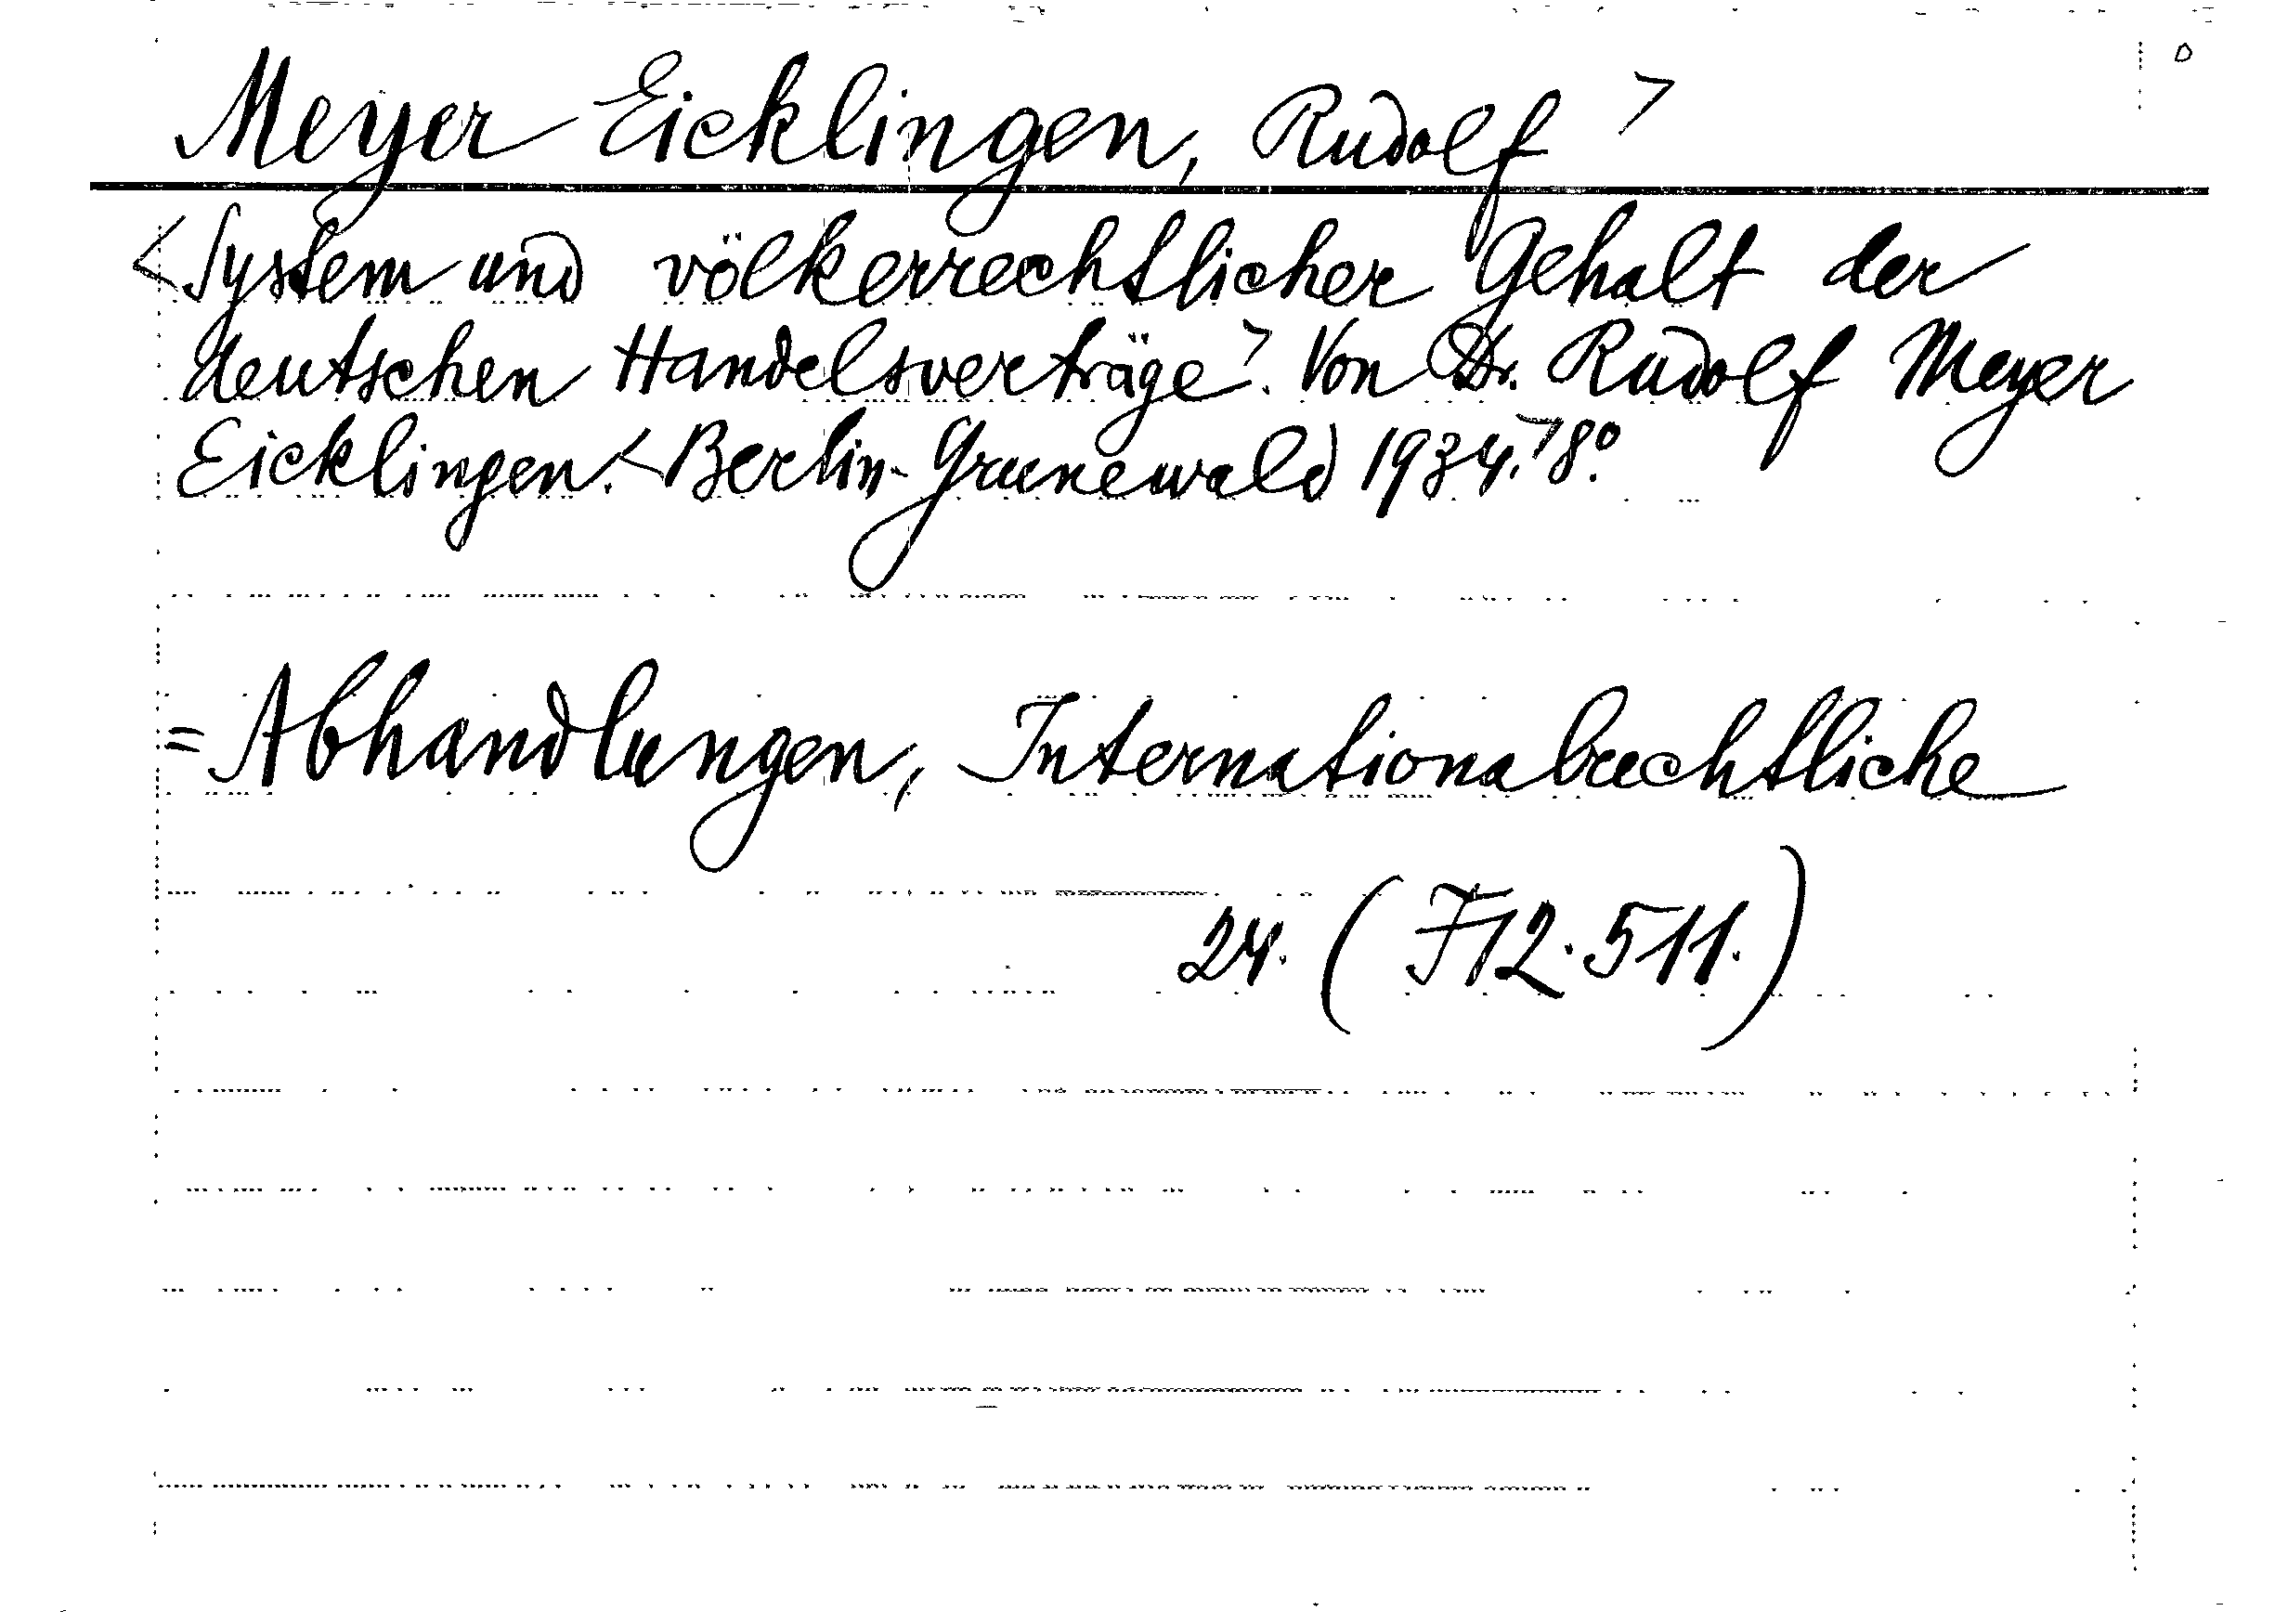 Meyer Eicklingen, Rudolf >
< System und völkerrechtlicher Gehalt der
deutschen Handelsverträge >. Von Dr. Rudolf Meyer
Eicklingen. < Berlin-Grunewald 1934. > 8°.
= Abhandlungen, Internationalrechtliche
24. (F12.511.)